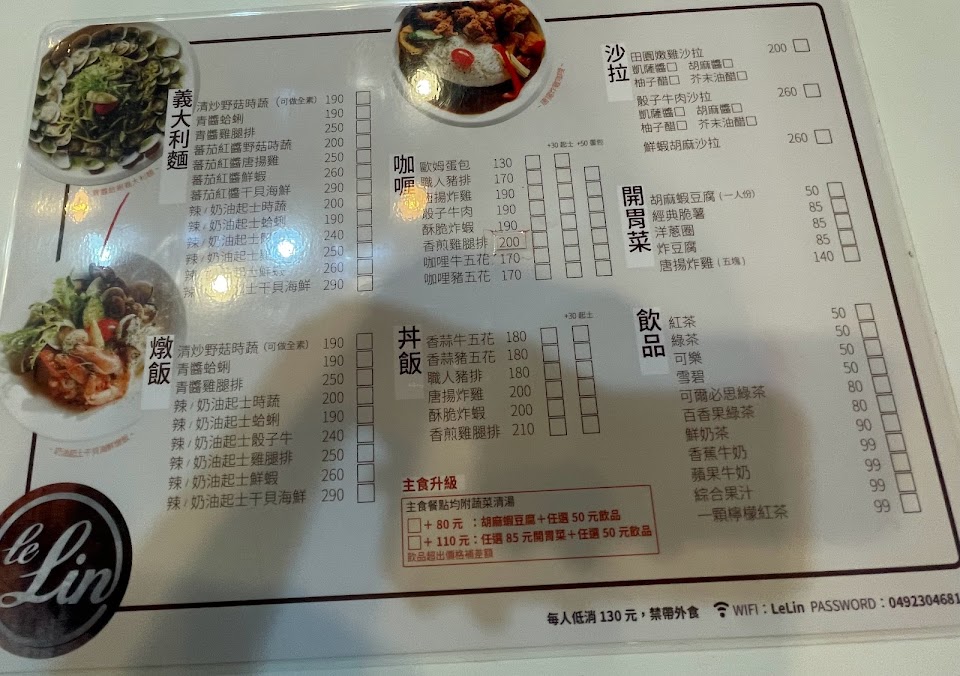 義大利麵
清炒野菇時蔬 (可做全素) 190
青醬蛤蜊 190
青醬雞腿排 250
蕃茄紅醬野菇時蔬 200
蕃茄紅醬唐揚雞 250
蕃茄紅醬鮮蝦 260
蕃茄紅醬干貝海鮮 290
辣/奶油起士時蔬 200
辣/奶油起士蛤蜊 190
辣/奶油起士 240
辣/奶油起士 250
辣/奶油起士鮮蝦 260
辣/奶油起士干貝海鮮 290
燉飯
清炒野菇時蔬 (可做全素) 190
青醬蛤蜊 190
青醬雞腿排 250
辣/奶油起士時蔬 200
辣/奶油起士蛤蜊 190
辣/奶油起士骰子牛 240
辣/奶油起士雞腿排 250
辣/奶油起士鮮蝦 260
辣/奶油起士干貝海鮮 290
le Lin
咖哩
+30 起士 +50 蛋包
歐姆蛋包 130
職人豬排 170
唐揚炸雞 190
骰子牛肉 190
酥脆炸蝦 190
香煎雞腿排 200
咖哩牛五花 170
咖哩豬五花 170
丼飯
+30 起士
香蒜牛五花 180
香蒜豬五花 180
職人豬排 180
唐揚炸雞 200
酥脆炸蝦 200
香煎雞腿排 210
主食升級
主食餐點均附蔬菜清湯
□ + 80 元 : 胡麻蝦豆腐+任選 50 元飲品
□ + 110 元 : 任選 85 元開胃菜+任選 50 元飲品
飲品超出價格補差額
沙拉
田園嫩雞沙拉 200
凱薩醬□ 胡麻醬□
柚子醋□ 芥末油醋□
骰子牛肉沙拉 260
凱薩醬□ 胡麻醬□
柚子醋□ 芥末油醋□
鮮蝦胡麻沙拉 260
開胃菜
胡麻蝦豆腐 (一人份) 50
經典脆薯 85
洋蔥圈 85
炸豆腐 85
唐揚炸雞 (五塊) 140
飲品
紅茶 50
綠茶 50
可樂 50
雪碧 50
可爾必思綠茶 80
百香果綠茶 80
鮮奶茶 90
香蕉牛奶 99
蘋果牛奶 99
綜合果汁 99
一顆檸檬紅茶 99
每人低消 130 元，禁帶外食 WIFI：LeLin PASSWORD：0492304681